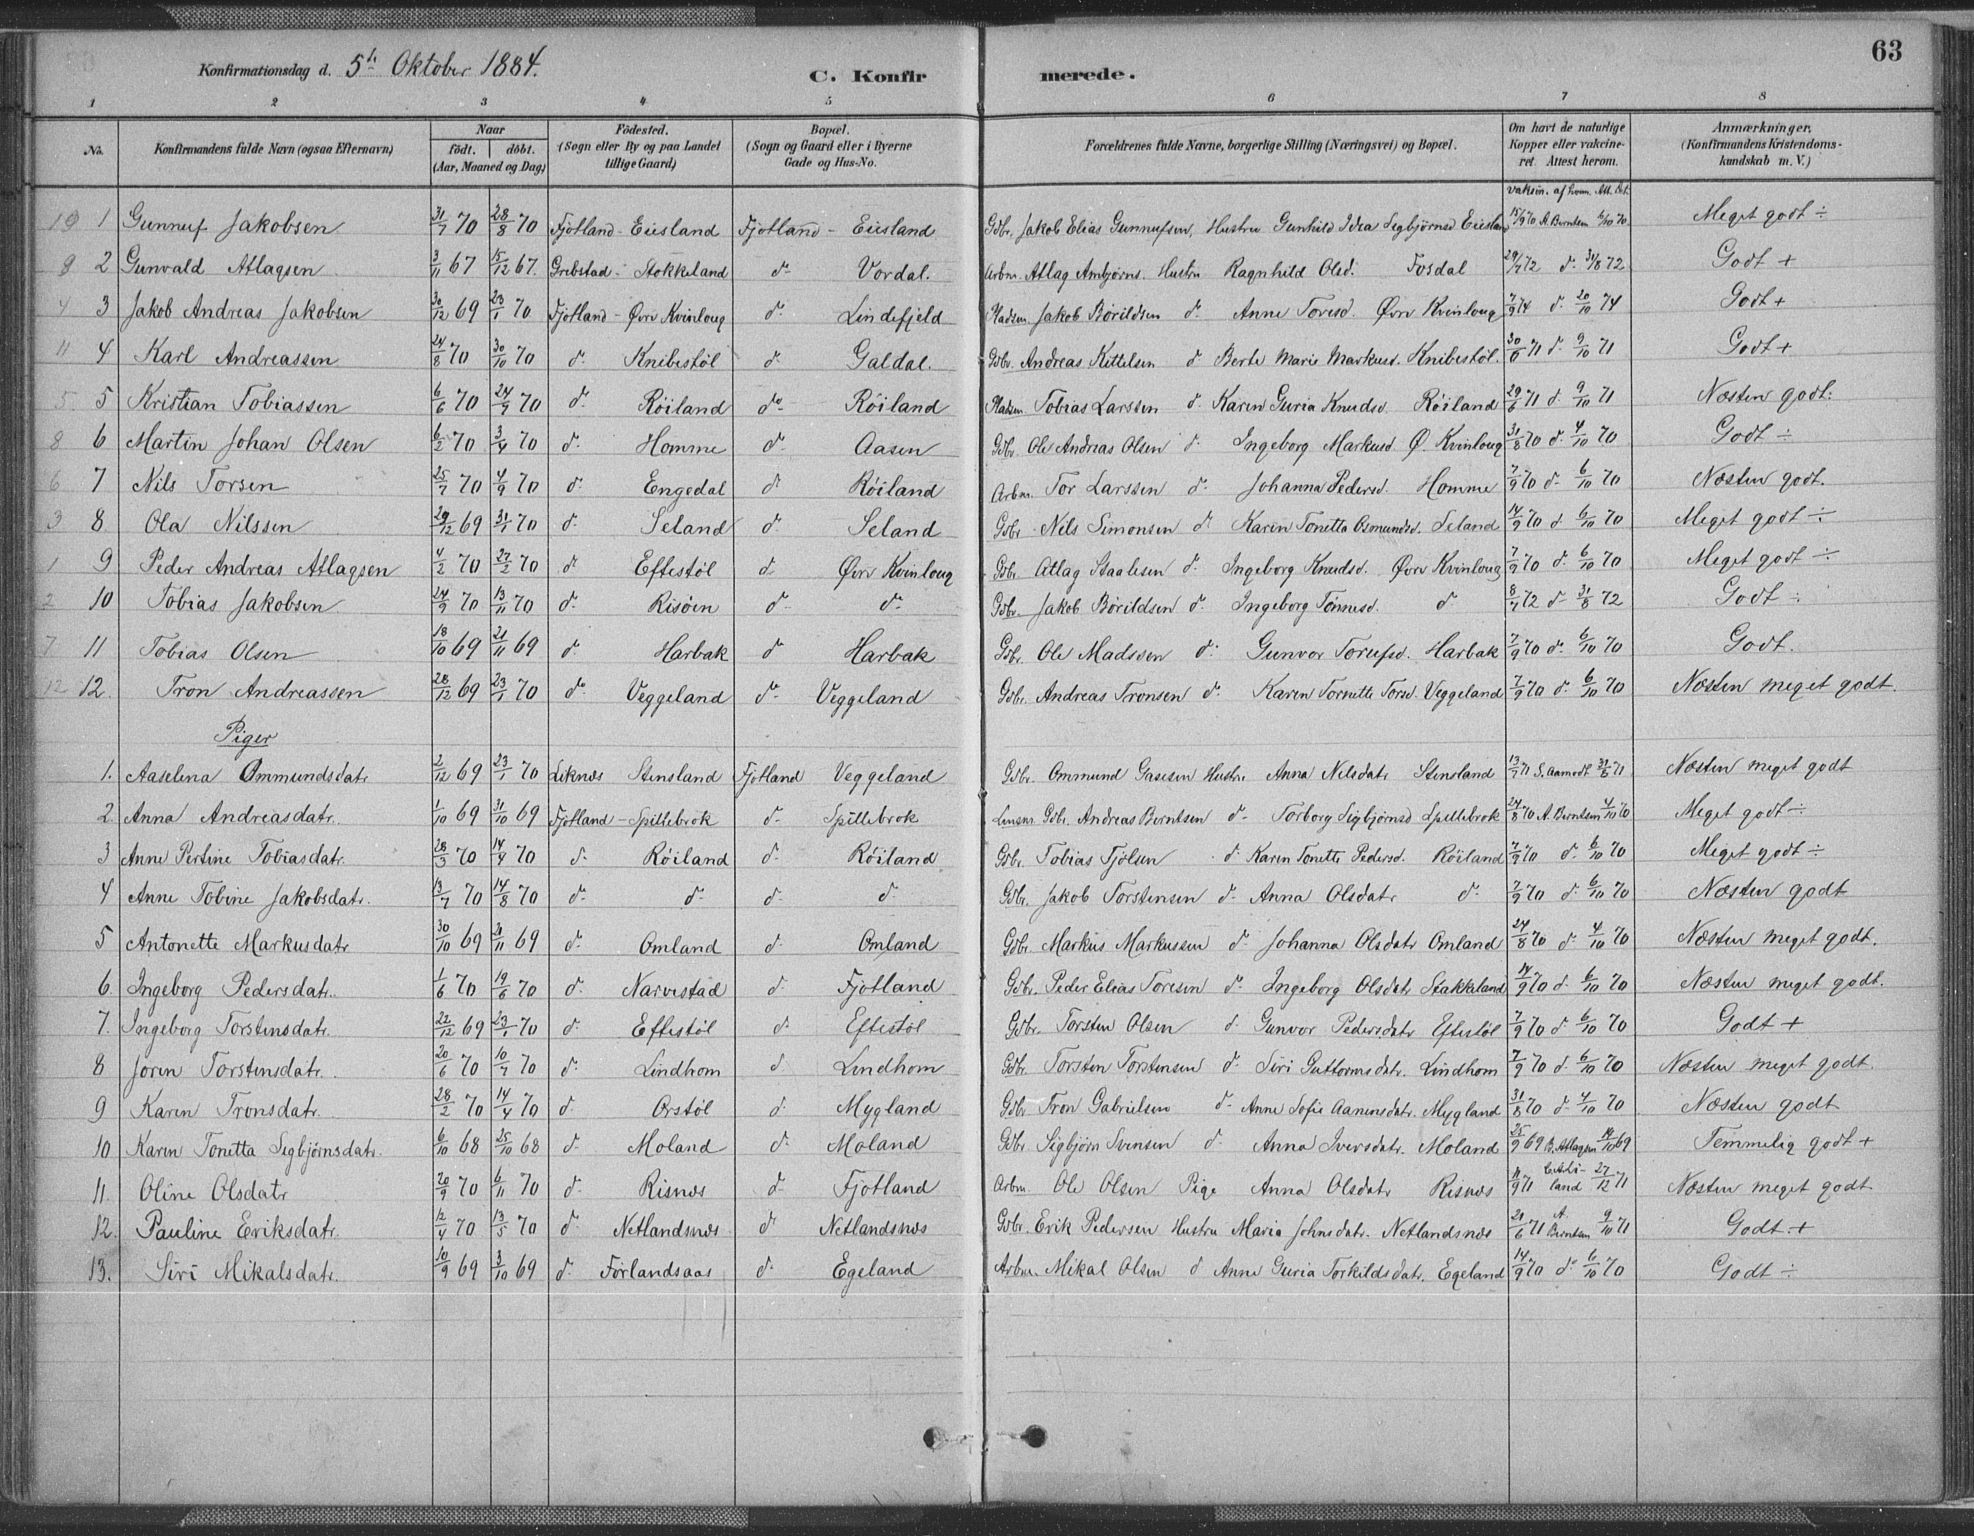 63
Konfirmationsdag d. 5te Oktober 1884. C. Konfirmerede.
1 2 3 4 5 6 7 8
No. Konfirmandens fulde Navn (ogsaa Efternavn) Naar født. døbt. (Aar, Maaned og Dag) Fødested. (Sogn eller By og paa Landet tillige Gaard) Bopæl. (Sogn og Gaard eller i Byerne Gade og Hus-No. Forældrenes fulde Navne, borgerlige Stilling (Næringsvei) og Bopæl. Om havt de naturlige Kopper eller vakcineret. Attest herom. Anmærkninger. (Konfirmandens Kristendomskundskab m. V.)
vaksin. af hvem. Att. Dat.
10 1 Gunnuf Jakobsen 31/7 70 28/8 70 Fjotland - Eiesland Fjotland - Eiesland Gdbr. Jakob Elias Gunnufsen, Hustru Gunhild Idea Segbjørnsd Eiesland 15/9 70 A. Berntsen 6/10 70 Meget godt ÷
9 2 Gunvald Atlagsen 3/11 67 15/12 67. Grebstad - Stokkeland d- Vordal. Arbm. Atlag Ambjørns. Hustru Ragnhild Olsd. Fosdal 29/7 72 d- 31/8 72 Godt +
4 3 Jakob Andreas Jakobsen 30/12 69 23/1 70 Fjotland - Øvre Kvinloug d- Lindefjeld Pladsm. Jakob Børildsen d- Anne Toresd. Øvre Kvinloug 7/9 74 d- 20/10 74 Godt +
11 4 Karl Andreassen 24/8 70 30/10 70 d- Knibestøl d- Galdal. Gdbr. Andreas Kittelsen d Berte Marie Markusd. Knibestøl. 30/6 71 d- 9/10 71 Godt +
5 5 Kristian Tobiassen 6/6 70 24/7 70 d- Røiland d- Røiland Pladsm. Tobias Larssen d- Karen Guria Knudsd. Røiland 29/6 71 d. 9/10 71 Næsten godt.
8 6 Martin Johan Olsen 6/2 70 3/4 70 d- Homme d- Aasen Gdbr. Ole Andreas Olsen d- Ingeborg Markusd Ø. Kvinloug 31/8 70 d- 4/10 70 Godt ÷
6 7 Nils Torsen 25/7 70 4/9 70 d- Engedal d- Røiland Arbm. Tor Larssen d- Johanna Pedersd. Homme 7/9 70 d- 6/10 70 Næsten godt.
3 8. Ola Nilssen 29/12 69 31/1 70 d- Seland d- Seland Gdbr. Nils Simonsen d- Karen Tonetta Osmundsd. Seland 14/9 70 d 6/10 70 Meget godt ÷
1 9 Peder Andreas Atlagsen 4/2 70 27/2 70 d- Eftestøl d- Øvre Kvinloug Gdbr. Atlag Staalesen d- Ingeborg Knudsd. Øvre Kvinloug 7/9 70 d- 6/10 70 Meget godt ÷
2 10 Tobias Jakobsen 24/9 70 13/11 70 d- Risøen d- d- Gdbr. Jakob Børildsen d- Ingeborg Tønnesd. d 8/7 72 d- 31/8 72 Godt ÷
7 11 Tobias Olsen 18/10 69 21/11 69 d- Harbak d- Harbak Gdbr. Ole Madssen d- Gunvor Torufsd. Harbak 7/9 70 d- 6/10 70 Godt.
12 12. Tron Andreassen 28/12 69 23/1 70 d- Veggeland d- Veggeland Gdbr. Andreas Tronsen d- Karen Tornette Torsd. Veggeland 7/9 70 d- 6/10 70 Næsten meget godt.
Piger
1. Aaselena Ommundsdatr. 2/12 69 23/1 70 Leknæs Stensland Fjotland Veggeland Gdbr. Ommund Gasesen Hustru Anna Nilsdatr Stensland 13/7 71 S. Aamodt 31/8 71 Næsten meget godt
2. Anna Andreasdatr. 1/10 69 31/10 69 Fjotland - Spillebrok d- Spillebrok Lensm. Gdbr. Andreas Berntsen d- Torborg Sigbjørnsd Spillebrok 24/8 70 A. Berntsen 4/10 70 Meget godt ÷
3 Anne Pertine Tobiasdatr. 28/3 70 14/4 70 d- Røiland d- Røiland Gdbr. Tobias Tjølsen d Karen Tonette Pedersd. Røiland 7/9 70 d. 6/10 70 Meget godt ÷
4 Anne Tobine Jakobsdatr. 13/7 70 14/8 70 d- d- d- d- Gdbr. Jakob Torstensen d- Anna Olsdatr d- 7/9 70 d 6/10 70 Næsten godt
5 Antonette Markusdatr 30/10 69 21/11 69 d- Omland d- Omland Gdbr. Markus Markussen d- Johanna Olsdatr Omland 24/8 70 d 4/10 70 Næsten meget godt.
6. Ingeborg Pedersdatr. 1/6 70 19/6 70 d- Narvestad d- Fjotland Gdbr. Peder Elias Toresen d- Ingeborg Olsdatr Stakkeland 14/9 70 d. 6/10 70 Næsten meget godt.
7. Ingeborg Torstensdatr. 22/12 69 23/1 70 d- Eftestøl d- Eftestøl Gdbr. Torsten Olsen d. Gunvor Pedersdatr Eftestøl 7/9 70 d 6/10 70 Godt +
8 Joren Torstensdatr. 20/6 70 10/7 70 d- Lindhom d- Lindhom Gdbr. Torsten Torstensen d- Siri Guttormsdatr. Lindhom 7/9 70 d. 6/10 70 Næsten meget godt.
9 Karen Tronsdatr. 28/2 70 14/4 70 d- Orstøl d- Mygland Gdbr Tron Gabrielsen d- Anne Sofie Aanensdatr. Mygland 31/8 70 d- 4/10 70 Næsten godt
10 Karen Tonetta Sigbjørnsdatr. 6/10 68 25/10 68 d- Moland d- Moland Gdbr. Sigbjørn Svensen d- Anna Iversdatr. Moland 25/9 69 B. Atlagsen 14/10 69 Temmelig godt +
11. Oline Olsdatr 20/9 70 6/11 70 d- Risnæs d- Fjotland Arbm. Ole Olsen Pige Anna Olsdatr Risnæs 11/9 71 27/12 71 Næsten meget godt
12. Pauline Eriksdatr. 12/4 70 13/5 70 d- Netlandsnæs d- Netlandsnæs Gdbr. Erik Pedersen Hustru Maria Johnsdatr. Netlandsnæs 21/6 71 A. Berntsen 9/10 71 Godt. +
13. Siri Mikalsdatr. 10/9 69 3/10 69 d- Førlandsaas d- Egeland Arbm. Mikal Olsen d Anne Guria Torkildsdatr. Egeland 14/9 70 d- 6/10 70 Godt ÷